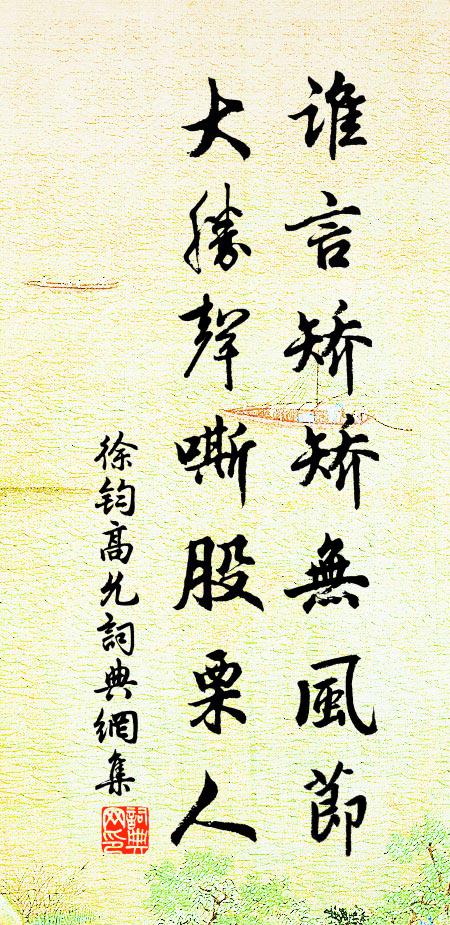 誰言矫矫無風節
大勝聲嘶股栗人
徐鈞高允詞典網集
詞典网印